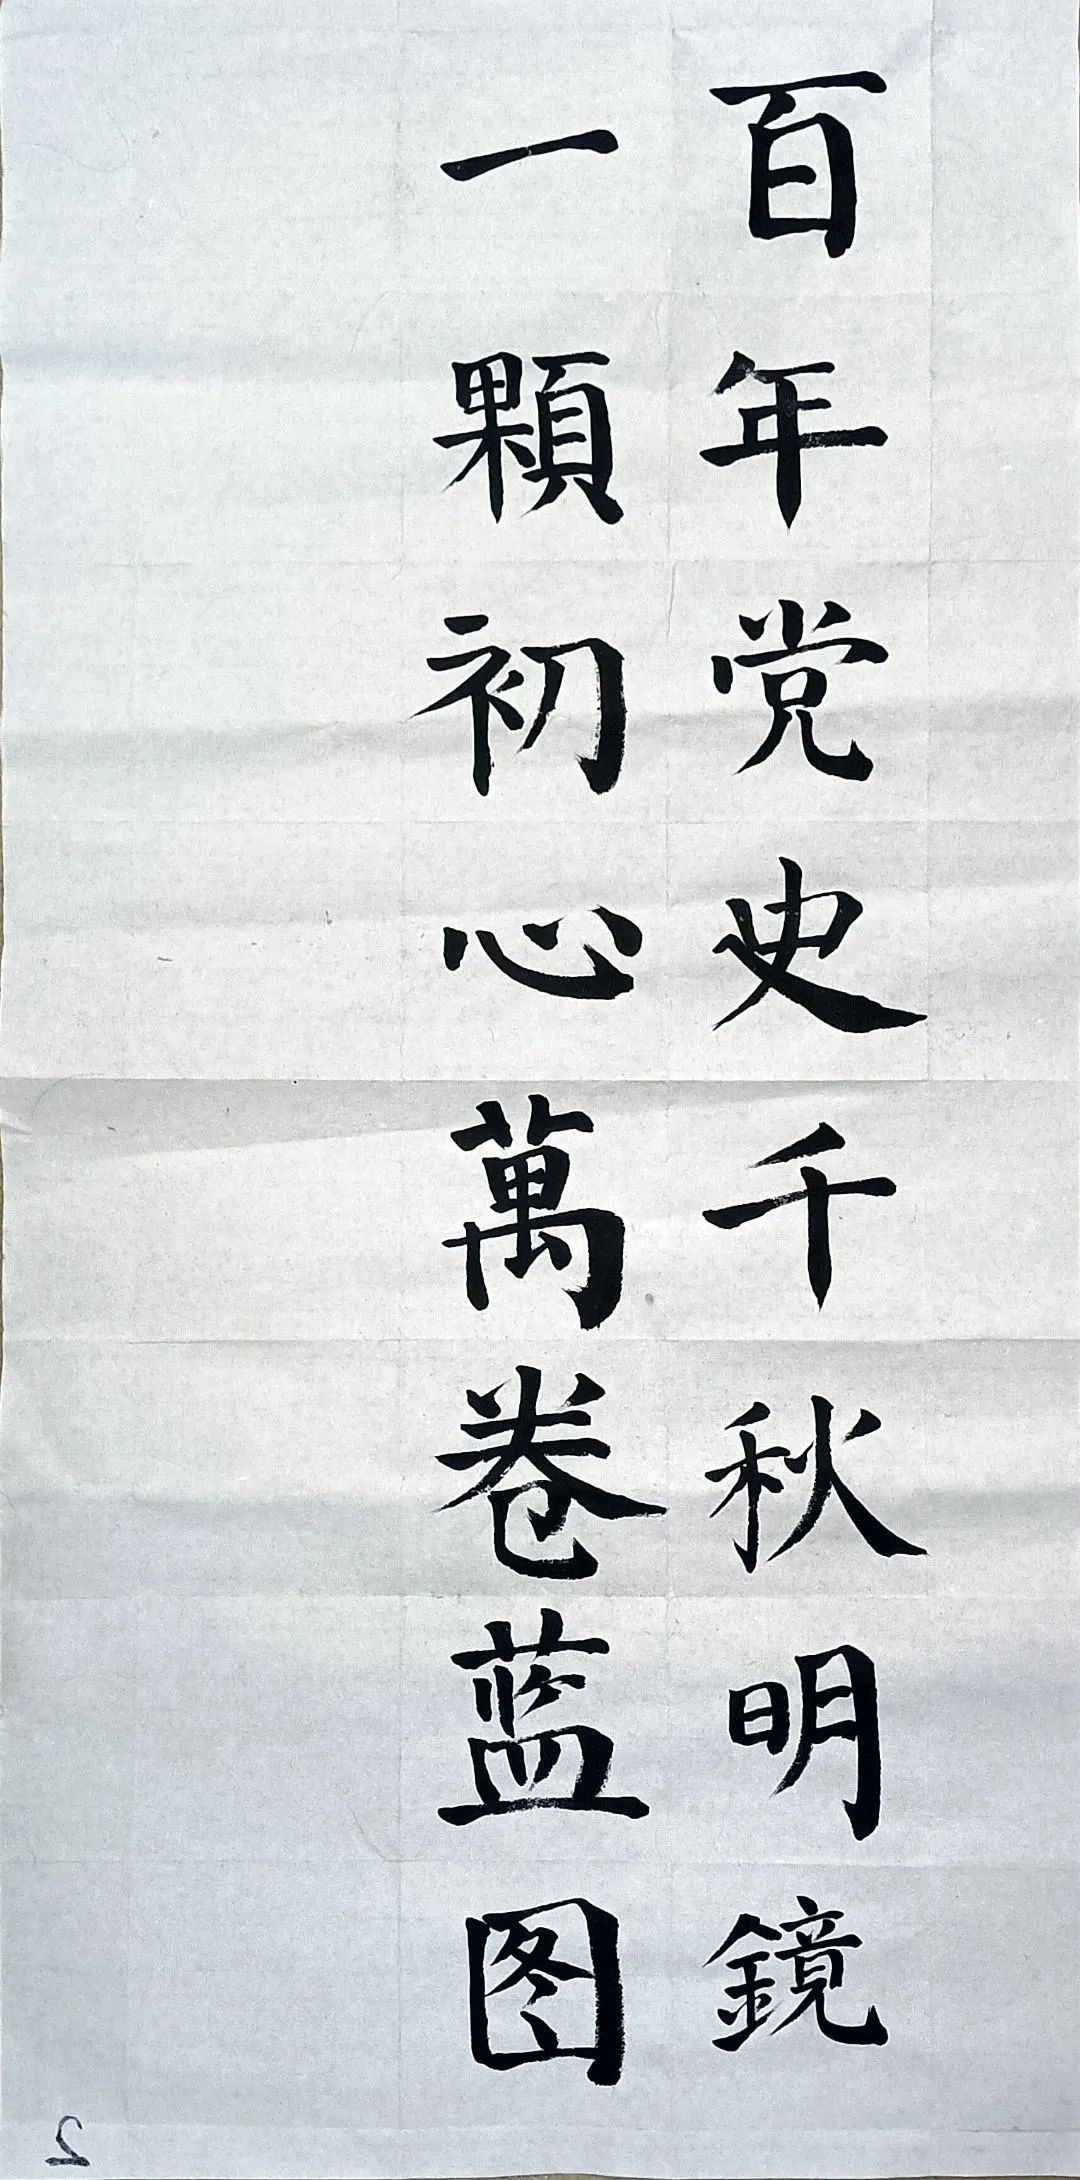 百年党史千秋明鏡
一顆初心萬卷蓝图
2